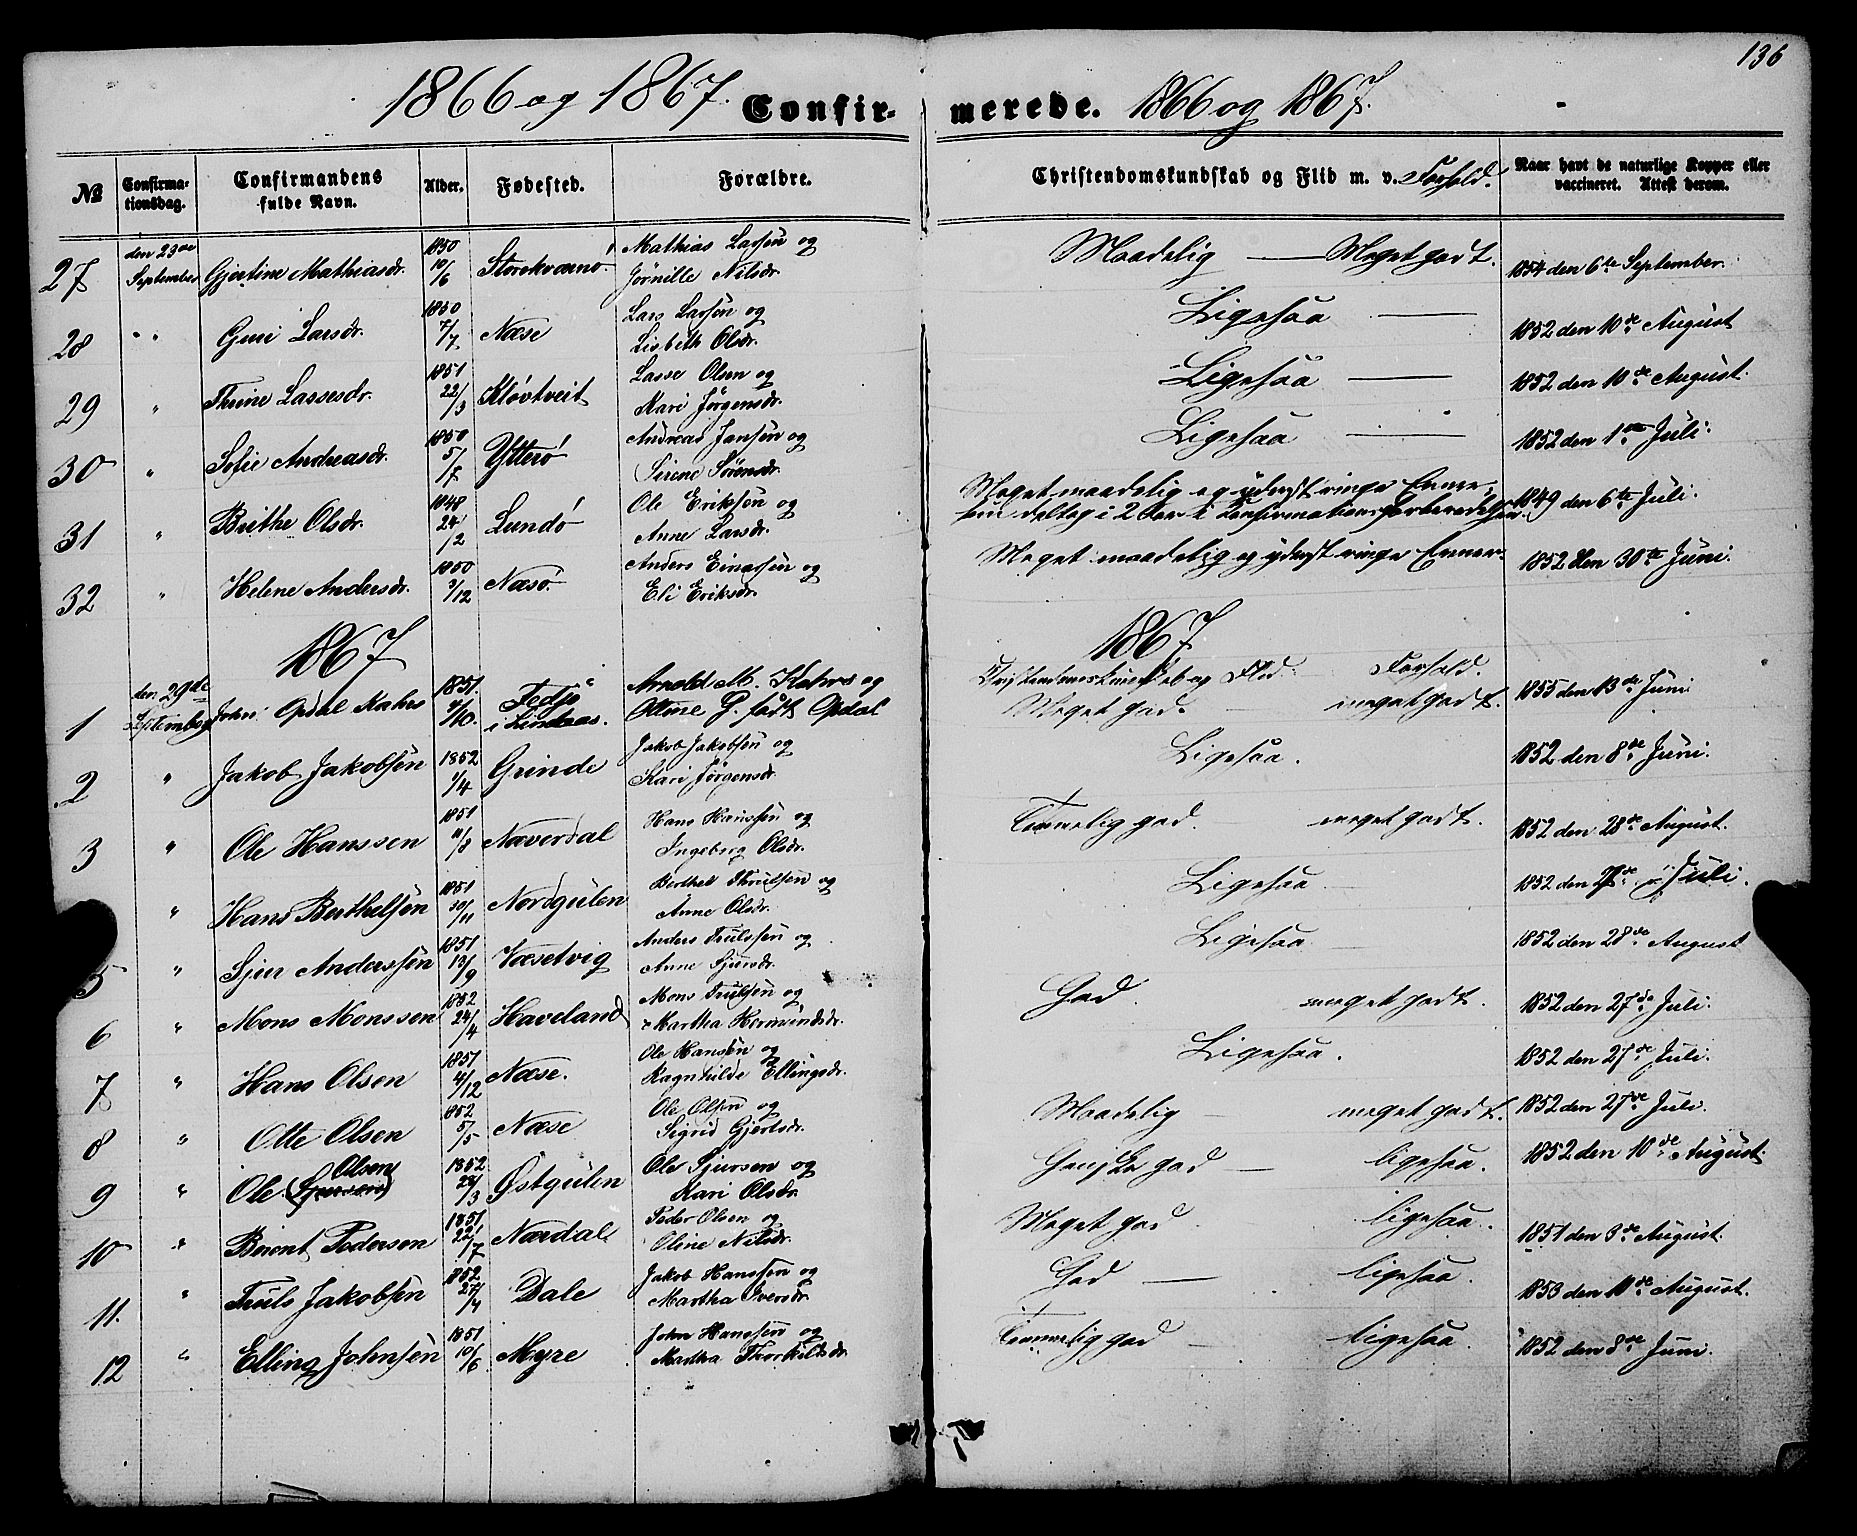 136
1866 og 1867. Confirmerede. 1866 og 1867.
№ Confirmationsdag. Confirmandens fulde Navn. Alder. Fødested. Forældre. Christendomskundskab og Flid m. v. Forhold. Naar havt de naturlige Kopper eller vaccineret. Attest derom.
27 den 23de September Gjertine Mathiasdr. 1850 10/6 Storekværnø. Mathias Larsen og Jørnille Nilsdr. Maadelig — Meget godt. 1854 den 6te September.
28 " " Guri Larsdr. 1850 7/7 Næse Lars Larsen og Lisbeth Olsdr. Ligesaa — 1852 den 10de August
29 " Thrine Lassesdr. 1851 22/3 Kløvtveit Lasse Olsen og Kari Jørgensdr. Ligesaa — 1852 den 10de August.
30 " Sofie Andreasdr. 1850 5/7 Ytterø Andreas Jansen og Sirene Sørensdr. Ligesaa — 1852 den 1ste Juli.
31 " Brithe Olsdr. 1848 24/2 Lundø Ole Eriksen og Anne Larsdr. Meget maadelig og yderst ringe Evner, hun deltog i 2 Aar i Confirmationsforberedelsen. 1849 den 6te Juli.
32 " Helene Andersdr. 1850 3/12 Næsø. Anders Einarsen og Eli Eriksdr. Meget maadelig og yderst ringe Evner. 1852 den 30te Juni.
1867 1867
Christendomskundskab og Flid. Forhold.
1 den 29de September John Opdal Kahrs 1851. 4/10. Fedje i Lindaas. Arnold M. Kahrs og Ottine G. født Opdal Meget god. — meget godt. 1855 den 13de Juni
2 " Jakob Jakobsen 1852 1/4 Grinde Jakob Jakobsen og Kari Jørgensdr. Ligesaa. 1852 den 8de Juni.
3 " Ole Hanssen 1851 11/8 Næverdal Hans Hanssen og Ingeborg Olsdr. Temmelig god. meget godt. 1852 den 28de August.
" Hans Berthelsen 1851 30/11 Nordgulen Berthel Thrulsen og Anne Olsdr. Ligesaa — 1852 den 27de Juli.
5 " Sjur Anderssen 1851 13/9 Væsetvig Anders Trulssen og Anne Sjursdr. Ligesaa — 1852 den 28de August
6 " Mons Monssen 1852 24/4 Haveland Mons Trulsen og Martha Hermundsdr. God. meget godt. 1852 den 27de Juli.
7 " Hans Olsen 1851 4/12 Næse. Ole Hansen og Ragnhilde Ellingsdr. Ligesaa. 1852 den 27de Juli.
8 " Otte Olsen 1852 5/5 Næse Ole Olsen og Sigrid Gjertsdr. Maadelig — meget godt. 1852 den 27de Juli.
9 " Ole (Sjursen) Olsen 1852 28/3 Østgulen Ole Sjursen og Kari Olsdr. Ganske god — ligesaa. 1852 den 10de August.
10 " Berent Pedersen 1851. 22/7 Nærdal Peder Olsen og Oline Nilsdr. Meget god. ligesaa. 1851 den 3de August.
11. " Truls Jakobsen 1852 27/4 Dale Jakob Hanssen og Martha Iversdr. God — ligesaa. 1853 den 10de August.
12 " Elling Johnsen 1851 10/6 Myre John Hanssen og Martha Thorkildsdr. Temmelig god — ligesaa. 1852 den 8de Juni.